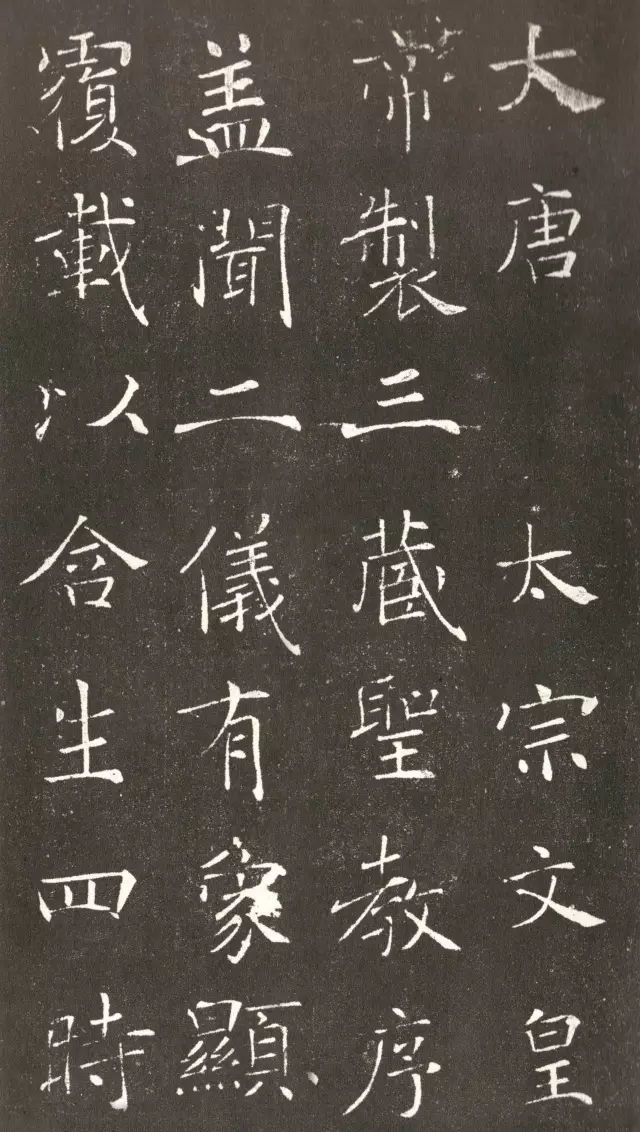 大唐太宗文皇
帝製三蔵聖教序
盖聞二儀有象顯
覆載以含生四時